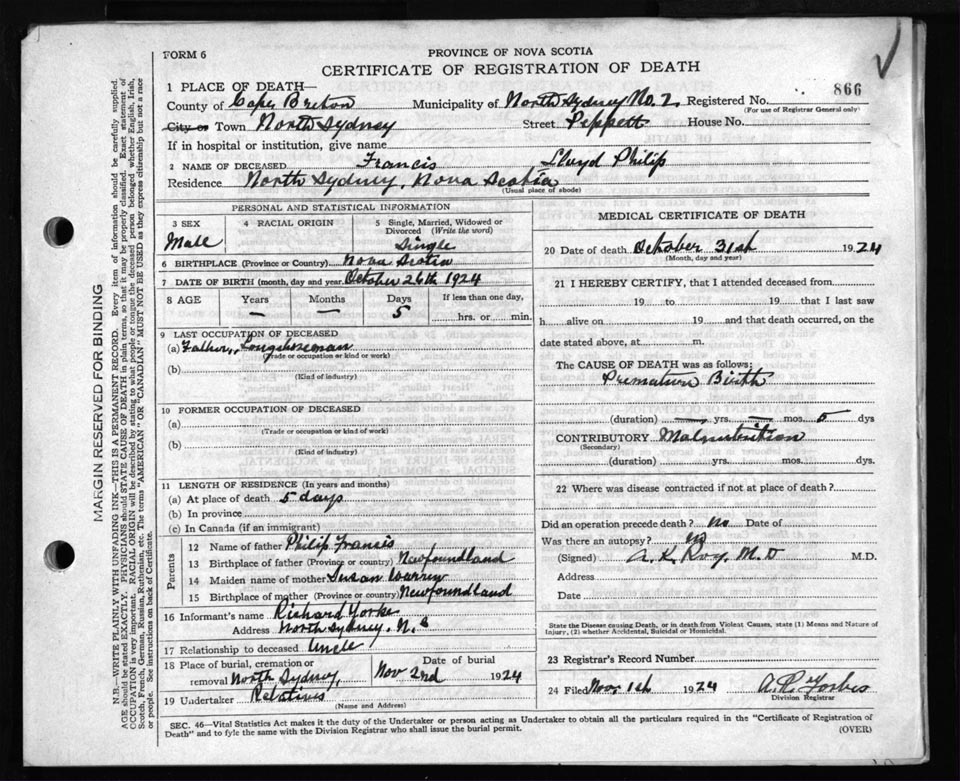 FORM 6
PROVINCE OF NOVA SCOTIA
CERTIFICATE OF REGISTRATION OF DEATH
866
1 PLACE OF DEATH—
County of Cape Breton Municipality of North Sydney No. 2 Registered No.
(For use of Registrar General only)
City or Town North Sydney Street Peppett House No.
If in hospital or institution, give name
2 NAME OF DECEASED Francis Lloyd Philip
Residence North Sydney, Nova Scotia
(Usual place of abode)
PERSONAL AND STATISTICAL INFORMATION
3 SEX Male
4 RACIAL ORIGIN
5 Single, Married, Widowed or Divorced (Write the word) Single
6 BIRTHPLACE (Province or Country) Nova Scotia
7 DATE OF BIRTH (month, day and year) October 26th 1924
8 AGE Years Months Days If less than one day,
— — 5 hrs. or min.
9 LAST OCCUPATION OF DECEASED
(a) Father, Longshoreman
(Trade or occupation or kind or work)
(b)
(Kind of industry)
10 FORMER OCCUPATION OF DECEASED
(a)
(Trade or occupation or kind or work)
(b)
(Kind of industry)
11 LENGTH OF RESIDENCE (In years and months)
(a) At place of death 5 days
(b) In province
(c) In Canada (if an immigrant)
Parents
12 Name of father Philip Francis
13 Birthplace of father (Province or country) Newfoundland
14 Maiden name of mother Susan Warren
15 Birthplace of mother (Province or country) Newfoundland
16 Informant's name Richard Yorke
Address North Sydney, N.S
17 Relationship to deceased Uncle
18 Place of burial, cremation or removal North Sydney, Date of burial Nov 2nd 1924
19 Undertaker Relatives
(Name and Address)
MEDICAL CERTIFICATE OF DEATH
20 Date of death October 31st 1924
(Month, day and year)
21 I HEREBY CERTIFY, that I attended deceased from
19 to 19 that I last saw
h alive on 19 and that death occurred, on the
date stated above, at m.
The CAUSE OF DEATH was as follows:
Premature Birth
(duration) — yrs. — mos. 5 dys
CONTRIBUTORY Malnutrition
(Secondary)
(duration) yrs. mos. dys.
22 Where was disease contracted if not at place of death?
Did an operation precede death? No Date of
Was there an autopsy? No
(Signed) A. K. Roy. M.D M.D.
Address
Date
State the Disease causing Death, or in death from Violent Causes, state (1) Means and Nature of Injury, (2) whether Accidental, Suicidal or Homicidal.
23 Registrar's Record Number
24 Filed Nov 1st 1924 A. R. Forbes
Division Registrar
SEC. 46—Vital Statistics Act makes it the duty of the Undertaker or person acting as Undertaker to obtain all the particulars required in the "Certificate of Registration of
Death" and to fyle the same with the Division Registrar who shall issue the burial permit. (OVER)
MARGIN RESERVED FOR BINDING
N.B.—WRITE PLAINLY WITH UNFADING INK—THIS IS A PERMANENT RECORD. Every item of information should be carefully supplied.
AGE should be stated EXACTLY. PHYSICIANS should STATE CAUSE OF DEATH in plain terms, so that it may be properly classified. Exact statement of
OCCUPATION is very important. RACIAL ORIGIN will be described by stating to what people or tongue the deceased person belonged whether English, Irish,
Scotch, French, German, Russian, Ruthenian, etc. The terms "AMERICAN" OR "CANADIAN" MUST NOT BE USED as they express citizenship but not a race
or people. See instructions on back of Certificate.